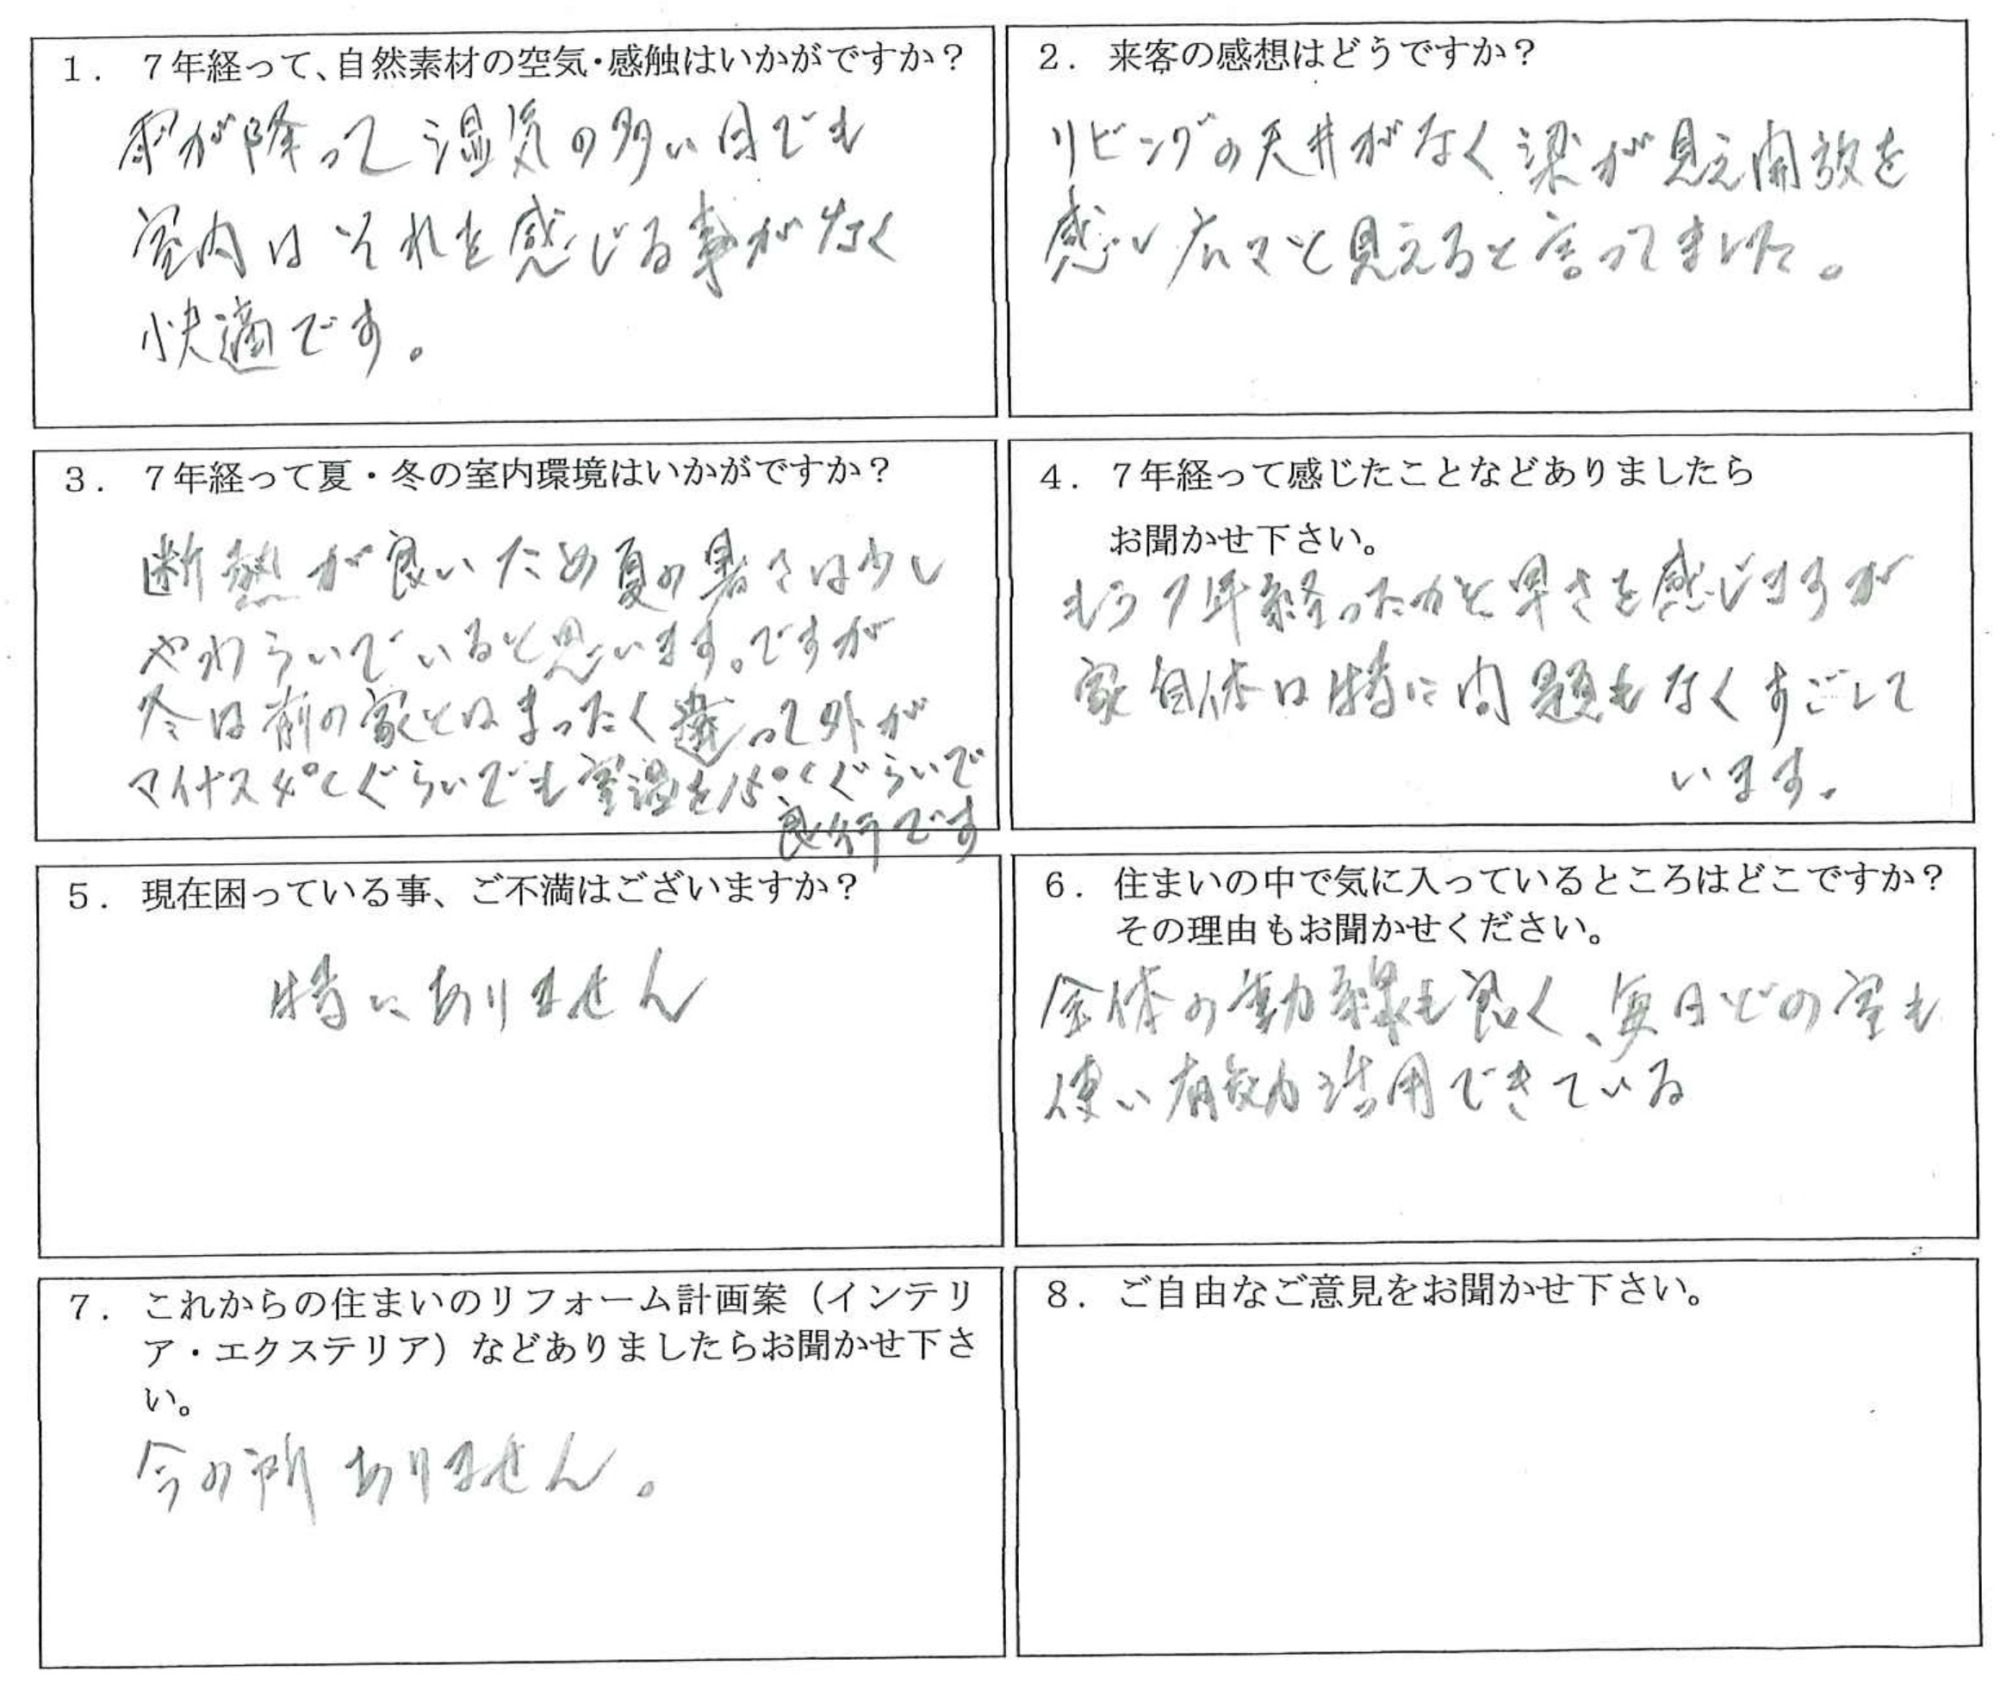 1. 7年経って、自然素材の空気・感触はいかがですか？
雨が降って湿気の多い日でも
室内はそれを感じる事がなく
快適です。
2. 来客の感想はどうですか？
リビングの天井がなく梁が見え開放を
感じ広々と見えると言ってました。
3. 7年経って夏・冬の室内環境はいかがですか？
断熱が良いため夏の暑さは少し
やわらいでいると思います。ですが
冬は前の家とはまったく違って外が
マイナス4℃ぐらいでも室温を15℃ぐらいで
良行です
4. 7年経って感じたことなどありましたら
お聞かせ下さい。
もう7年経ったかと早さを感じますが
家自体は特に問題もなくすごして
います。
5. 現在困っている事、ご不満はございますか？
特にありません
6. 住まいの中で気に入っているところはどこですか？
その理由もお聞かせください。
全体の動線も良く、毎日どの室も
使い有効活用できている
7. これからの住まいのリフォーム計画案（インテリ
ア・エクステリア）などありましたらお聞かせ下さ
い。
今の所ありません。
8. ご自由なご意見をお聞かせ下さい。